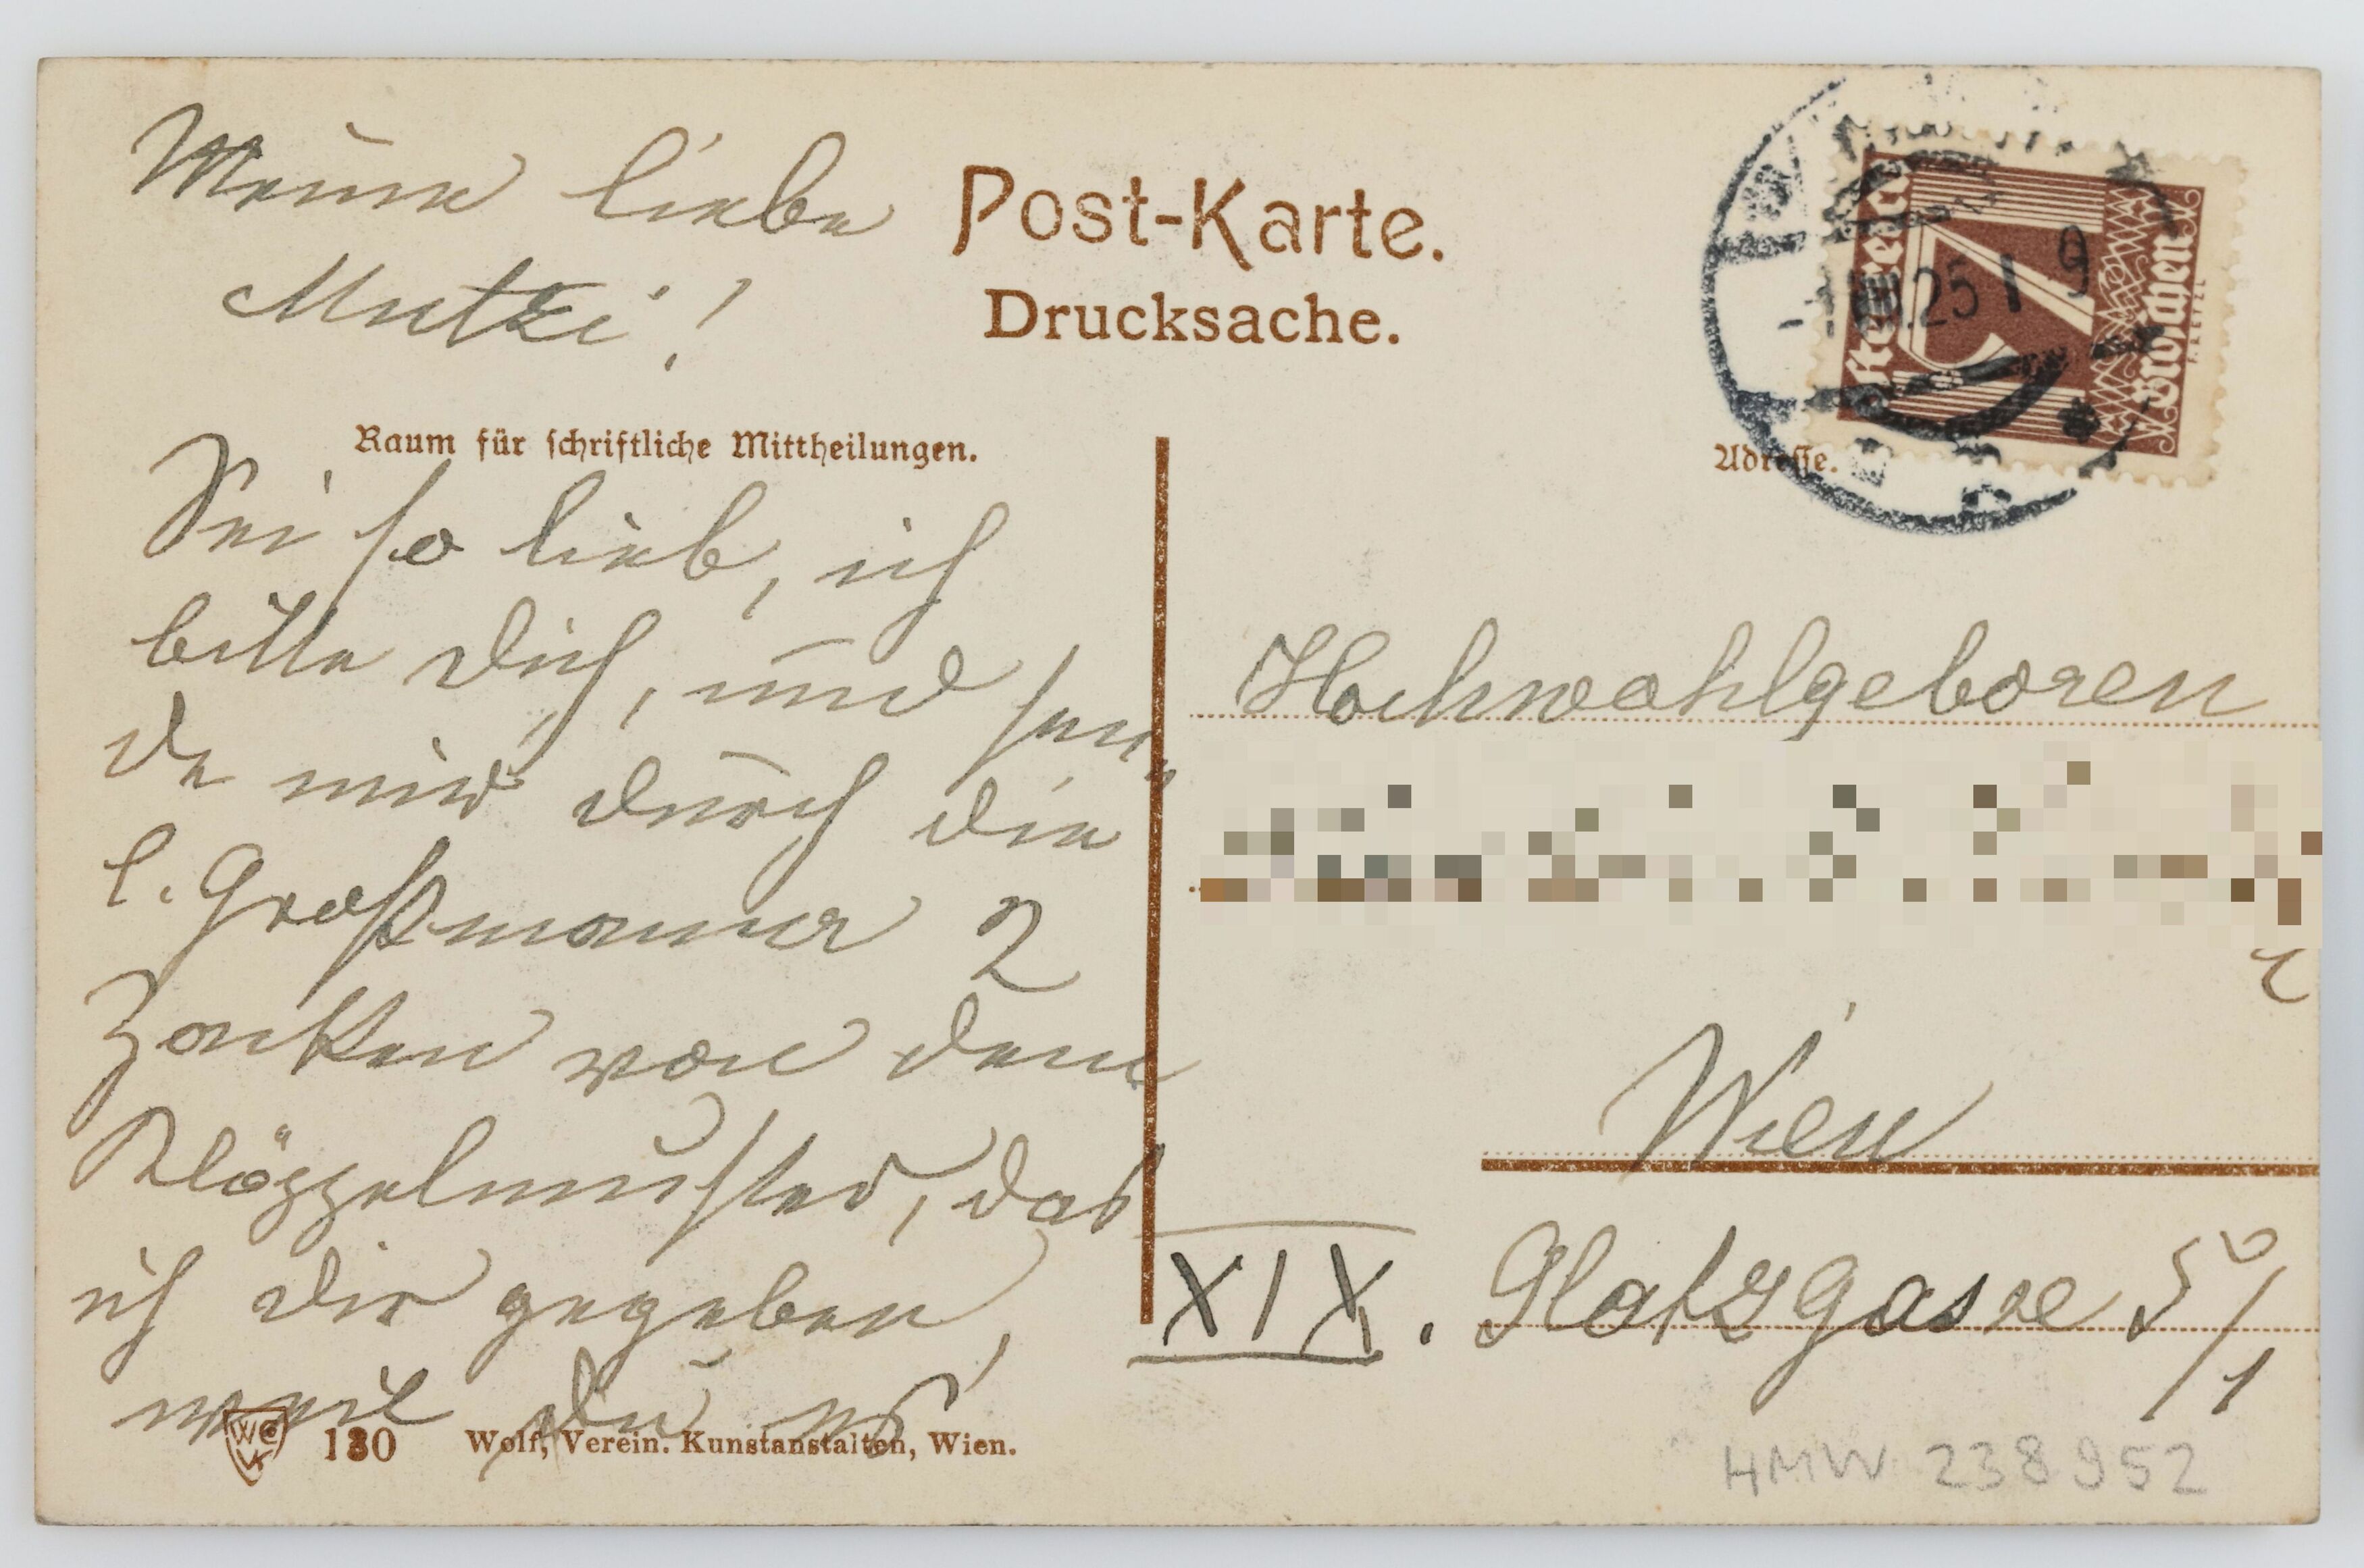 Meine liebe
Mutzi!
Post-Karte.
Drucksache.
Raum für schriftliche Mittheilungen.
Adresse.
25
9
7
Groschen
Sei so lieb, ich
bitte dich, und sen„
de mir durch die
l. Großmama 2
Zacken von dem
Klöppelmuster, das
ich dir gegeben,
weil du es
Hochwohlgeboren
Wien
XIX. Glatzgasse 5
/1
130 Wolf, Verein. Kunstanstalten, Wien.
HMW 238952